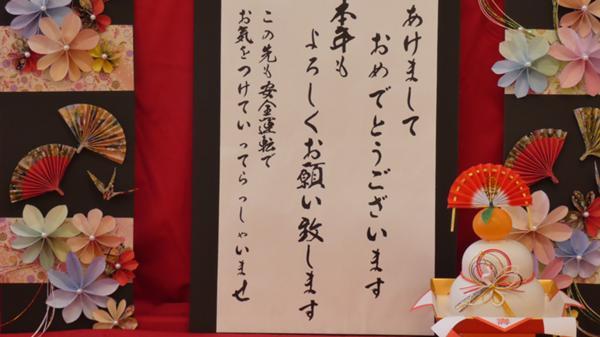 あけまして
おめでとうございます
本年も
よろしくお願い致します
この先も安全運転で
お気をつけていってらっしゃいませ